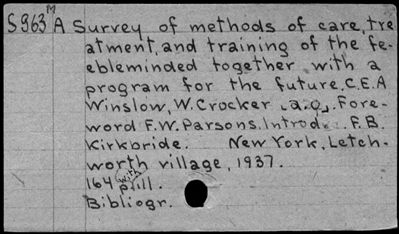 S963M A Survey of methods of care, tre
atment, and training of the fe-
ebleminded together with a
program for the future. C.E.A
Winslow, W. Crocker [a.o.]. Fore-
word F.W. Parsons. Introd. F.B.
Kirkbride. New York, Letch-
worth village, 1937.
164 p. with ill.
Bibliogr.